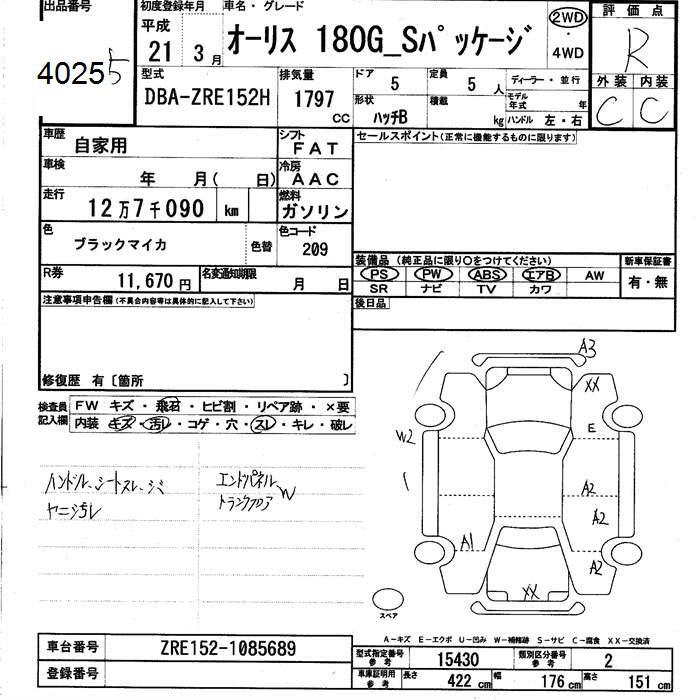 出品番号
40255
初度登録年月
平成 21 3月
車名・グレード
オーリス 180G_Sパッケージ
2WD
・
4WD
評価点
R
外装 内装
C C
型式
DBA-ZRE152H
排気量
1797 cc
ドア 5
定員 5 人
形状 ハッチB
積載 kg
ディーラー・並行
モデル年式 年
ハンドル 左・右
車歴 自家用
シフト FAT
車検 年 月( 日)
冷房 AAC
走行 12万7千090 km
燃料 ガソリン
色 ブラックマイカ 色替
色コード 209
R券 11,670円
名変通知期限 月 日
セールスポイント(正常に機能するものに限ります)
装備品 (純正品に限り○をつけてください)
PS PW ABS エアB AW
SR ナビ TV カワ
新車保証書
有・無
後日品
注意事項申告欄(不具合内容等は具体的に記入して下さい)
修復歴 有〔箇所 〕
検査員記入欄
FW キズ・飛石・ヒビ割・リペア跡・×要
内装 キズ・汚レ・コゲ・穴・スレ・キレ・破レ
ハンドル、シートスレ、シミ
ヤニ汚レ
エンドパネル
トランクフロア W
A3
XX
E
W2
A2
A2
A1
A2
XX
スペア
A-キズ E-エクボ U-凹み W-補修跡 S-サビ C-腐食 XX-交換済
車台番号 ZRE152-1085689
登録番号
型式指定番号 参考 15430
類別区分番号 参考 2
車庫証明用 参考 長さ 422 cm 幅 176 cm 高さ 151 cm